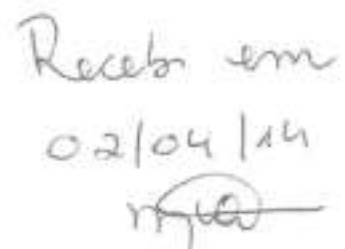 Recebi em
02/04/14